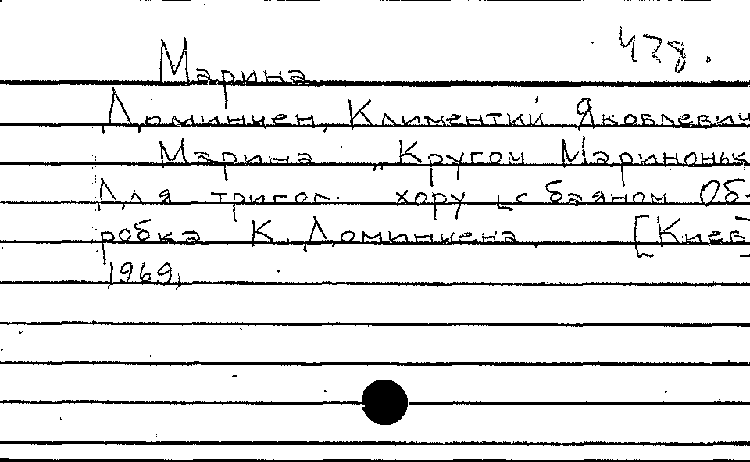 Марина
Доминчен, Климентий Яковлевич
Марина „Кругом Мариноньк
Для тригол. хору [с баяном Об-
робка К. Доминчена. [Киев]
1969,